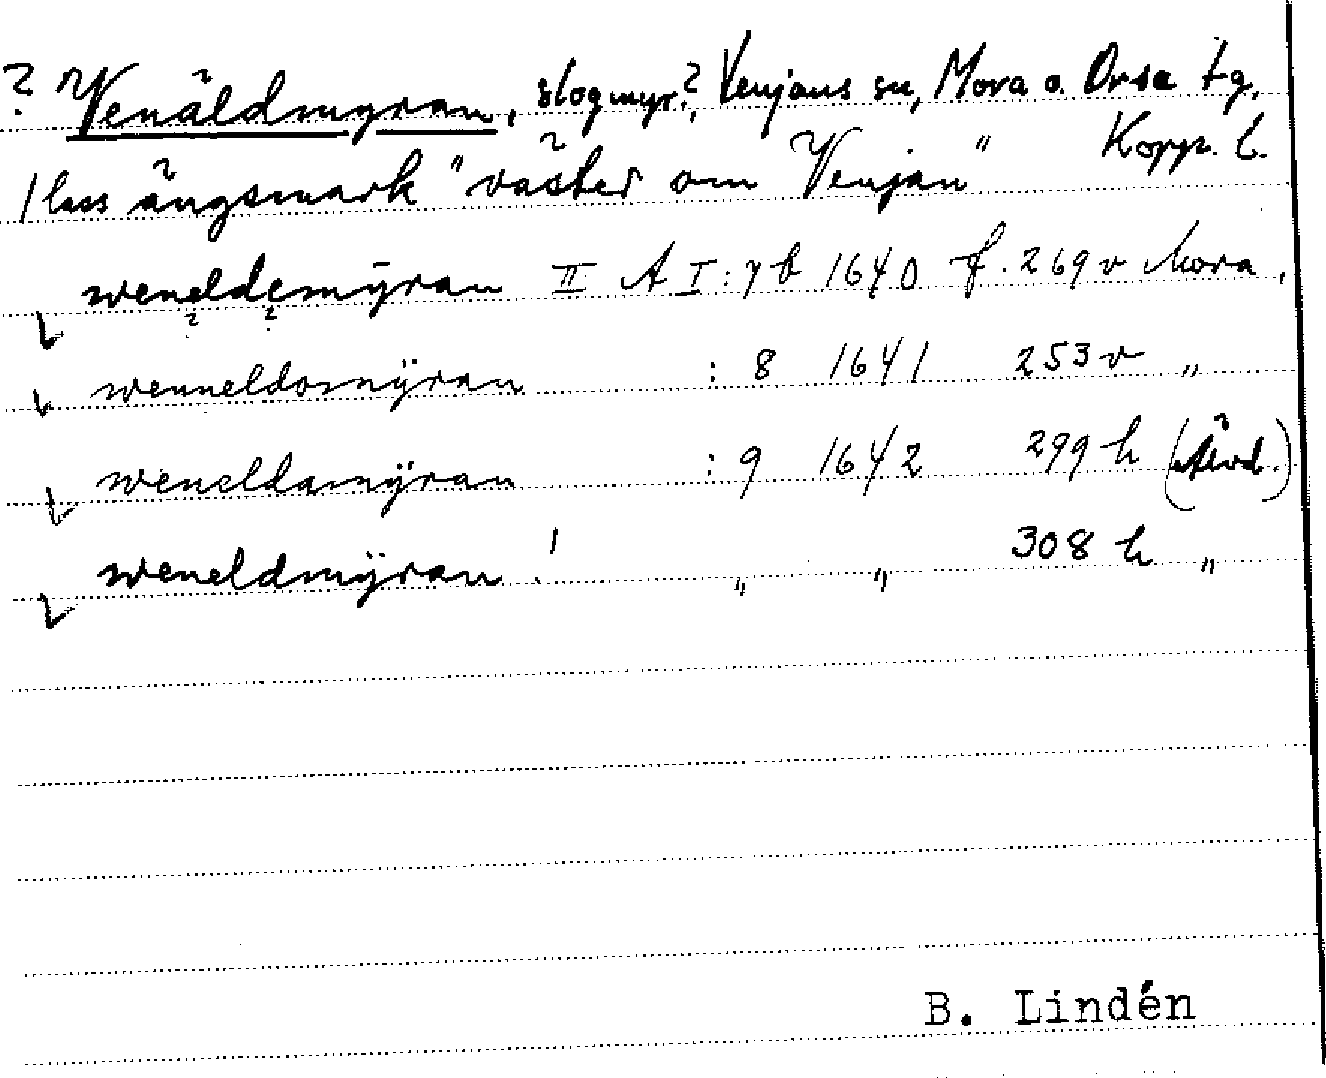 ? Venäldmyran, slogmyr?, Venjans sn, Mora o. Orsa tg,
Kopp. l.
1 lass ängsmark "väster om Venjan"
weneldemÿran II A I:7b 1640 f. 269 v Mora,
wenneldomÿran :8 1641 253 v "
weneldamÿran :9 1642 299 h (Älvd.)
weneldmÿran ! " " 308 h "
B. Lindén